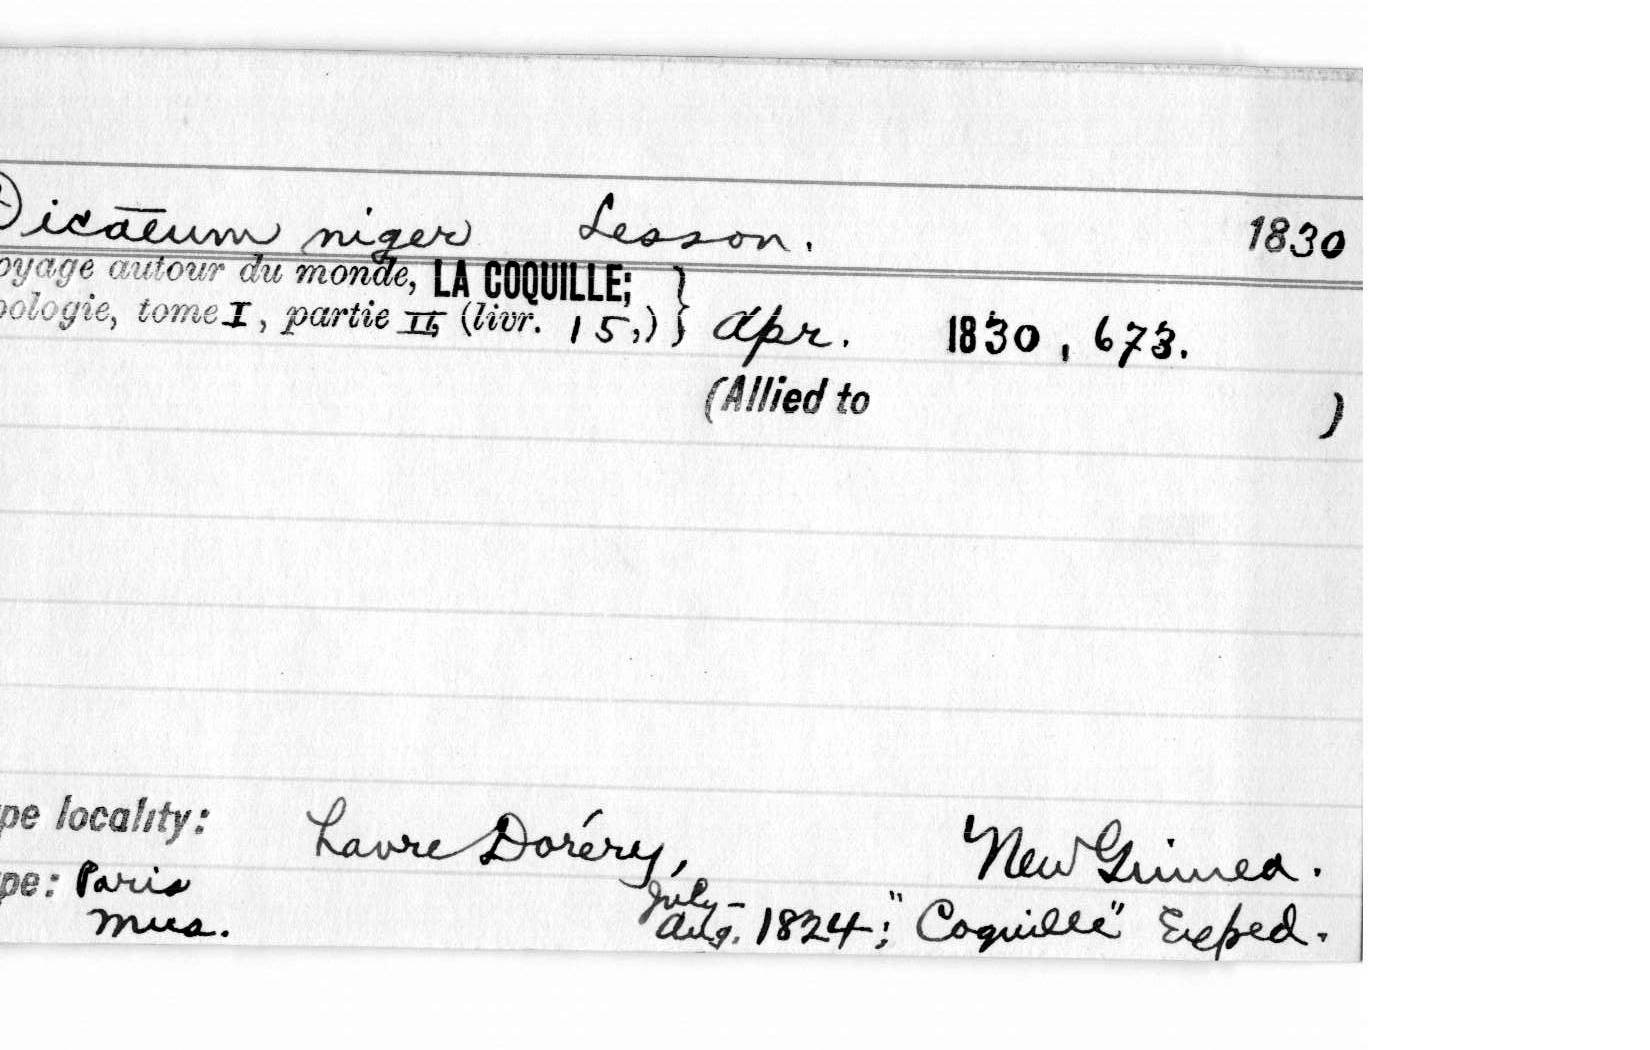 Dicaeum niger Lesson. 1830
oyage autour du monde, LA COQUILLE;
oologie, tome I, partie II, (livr. 15,) } Apr. 1830, 673.
(Allied to )
pe locality: havre Doréry, New Guinea.
pe: Paris July-
Mus. Aug. 1824; "Coquille" Exped.